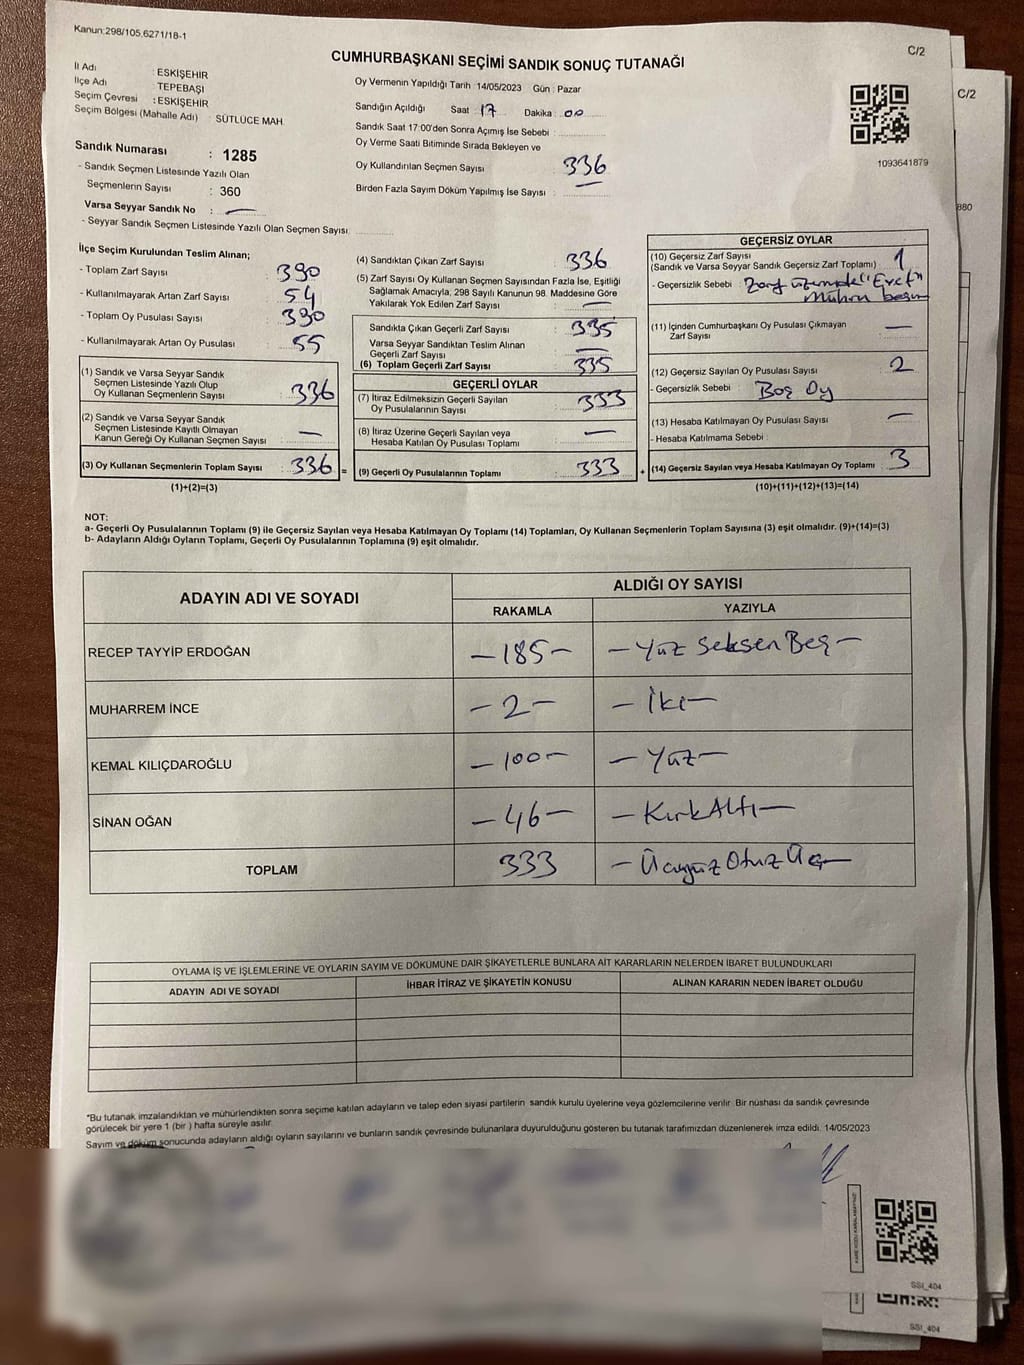 Kanun:298/105,6271/18-1
C/2
CUMHURBAŞKANI SEÇİMİ SANDIK SONUÇ TUTANAĞI
İl Adı : ESKİŞEHİR
İlçe Adı : TEPEBAŞI
Seçim Çevresi : ESKİŞEHİR
Seçim Bölgesi (Mahalle Adı) : SÜTLÜCE MAH.
Sandık Numarası : 1285
- Sandık Seçmen Listesinde Yazılı Olan
Seçmenlerin Sayısı : 360
Varsa Seyyar Sandık No : —
- Seyyar Sandık Seçmen Listesinde Yazılı Olan Seçmen Sayısı:
Oy Vermenin Yapıldığı Tarih :14/05/2023 Gün : Pazar
Sandığın Açıldığı Saat : 17 Dakika : 00
Sandık Saat 17:00'den Sonra Açımış İse Sebebi :
Oy Verme Saati Bitiminde Sırada Bekleyen ve
Oy Kullandırılan Seçmen Sayısı : 336
Birden Fazla Sayım Döküm Yapılmış İse Sayısı :
1093641879
C/2
880
İlçe Seçim Kurulundan Teslim Alınan;
- Toplam Zarf Sayısı : 390
- Kullanılmayarak Artan Zarf Sayısı : 54
- Toplam Oy Pusulası Sayısı : 390
- Kullanılmayarak Artan Oy Pusulası : 55
(1) Sandık ve Varsa Seyyar Sandık
Seçmen Listesinde Yazılı Olup
Oy Kullanan Seçmenlerin Sayısı : 336
(2) Sandık ve Varsa Seyyar Sandık
Seçmen Listesinde Kayıtlı Olmayan
Kanun Gereği Oy Kullanan Seçmen Sayısı : —
(3) Oy Kullanan Seçmenlerin Toplam Sayısı : 336 =
(1)+(2)=(3)
(4) Sandıktan Çıkan Zarf Sayısı : 336
(5) Zarf Sayısı Oy Kullanan Seçmen Sayısından Fazla İse, Eşitliği
Sağlamak Amacıyla, 298 Sayılı Kanunun 98. Maddesine Göre
Yakılarak Yok Edilen Zarf Sayısı : —
Sandıkta Çıkan Geçerli Zarf Sayısı : 335
Varsa Seyyar Sandıktan Teslim Alınan
Geçerli Zarf Sayısı : —
(6) Toplam Geçerli Zarf Sayısı : 335
GEÇERLİ OYLAR
(7) İtiraz Edilmeksizin Geçerli Sayılan
Oy Pusulalarının Sayısı : 333
(8) İtiraz Üzerine Geçerli Sayılan veya
Hesaba Katılan Oy Pusulası Toplamı : —
(9) Geçerli Oy Pusulalarının Toplamı : 333 +
GEÇERSİZ OYLAR
(10) Geçersiz Zarf Sayısı
(Sandık ve Varsa Seyyar Sandık Geçersiz Zarf Toplamı) : 1
- Geçersizlik Sebebi : Zarf üzerinde "Evet"
Mührü basılı
(11) İçinden Cumhurbaşkanı Oy Pusulası Çıkmayan
Zarf Sayısı : —
(12) Geçersiz Sayılan Oy Pusulası Sayısı : 2
- Geçersizlik Sebebi : Boş Oy
(13) Hesaba Katılmayan Oy Pusulası Sayısı : —
- Hesaba Katılmama Sebebi :
(14) Geçersiz Sayılan veya Hesaba Katılmayan Oy Toplamı : 3
(10)+(11)+(12)+(13)=(14)
NOT:
a- Geçerli Oy Pusulalarının Toplamı (9) ile Geçersiz Sayılan veya Hesaba Katılmayan Oy Toplamı (14) Toplamları, Oy Kullanan Seçmenlerin Toplam Sayısına (3) eşit olmalıdır. (9)+(14)=(3)
b- Adayların Aldığı Oyların Toplamı, Geçerli Oy Pusulalarının Toplamına (9) eşit olmalıdır.
ADAYIN ADI VE SOYADI
ALDIĞI OY SAYISI
RAKAMLA YAZIYLA
RECEP TAYYİP ERDOĞAN —185— —Yüz Seksen Beş—
MUHARREM İNCE —2— —İki—
KEMAL KILIÇDAROĞLU —100— —Yüz—
SİNAN OĞAN —46— —Kırk Altı—
TOPLAM 333 —Üçyüz Otuz Üç—
OYLAMA İŞ VE İŞLEMLERİNE VE OYLARIN SAYIM VE DÖKÜMÜNE DAİR ŞİKAYETLERLE BUNLARA AİT KARARLARIN NELERDEN İBARET BULUNDUKLARI
ADAYIN ADI VE SOYADI İHBAR İTİRAZ VE ŞİKAYETİN KONUSU ALINAN KARARIN NEDEN İBARET OLDUĞU
*Bu tutanak imzalandıktan ve mühürlendikten sonra seçime katılan adayların ve talep eden siyasi partilerin sandık kurulu üyelerine veya gözlemcilerine verilir. Bir nüshası da sandık çevresinde
görülecek bir yere 1 (bir ) hafta süreyle asılır.
Sayım ve döküm sonucunda adayların aldığı oyların sayılarını ve bunların sandık çevresinde bulunanlara duyurulduğunu gösteren bu tutanak tarafımızdan düzenlenerek imza edildi. 14/05/2023
SSI_404
SSI_404